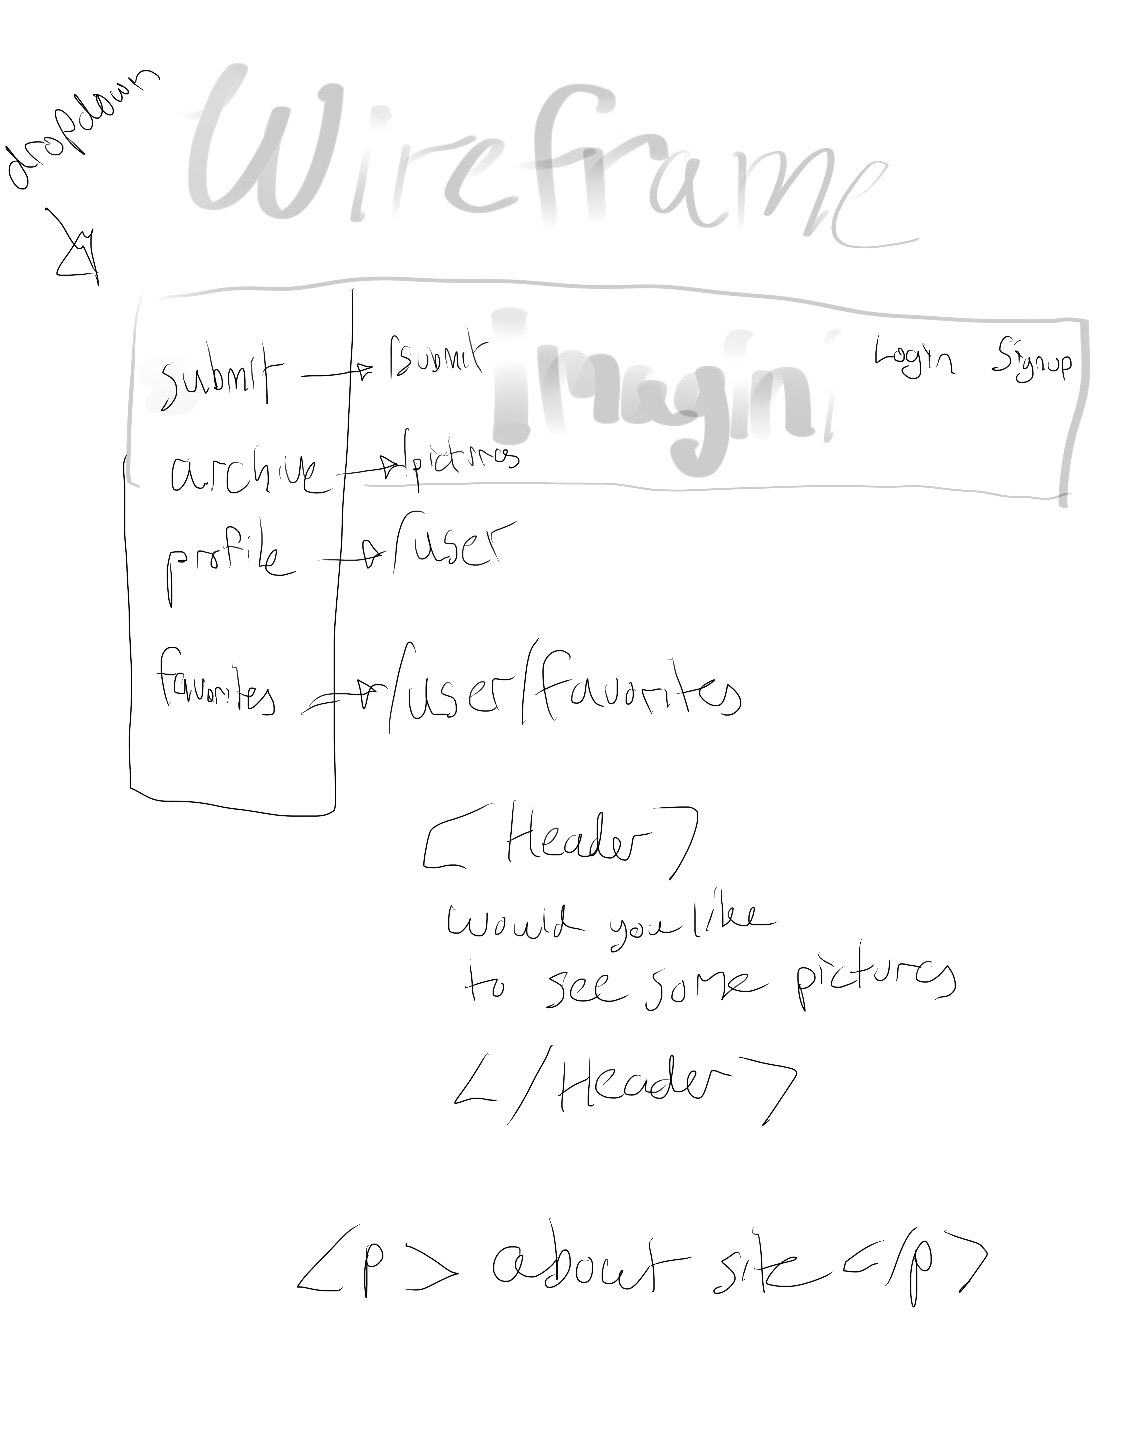 dropdown
Wireframe
submit /submit imagini Login Signup
archive /pictures
profile /user
favorites /user/favorites
<Header>
would you like
to see some pictures
</Header>
<p> about site </p>